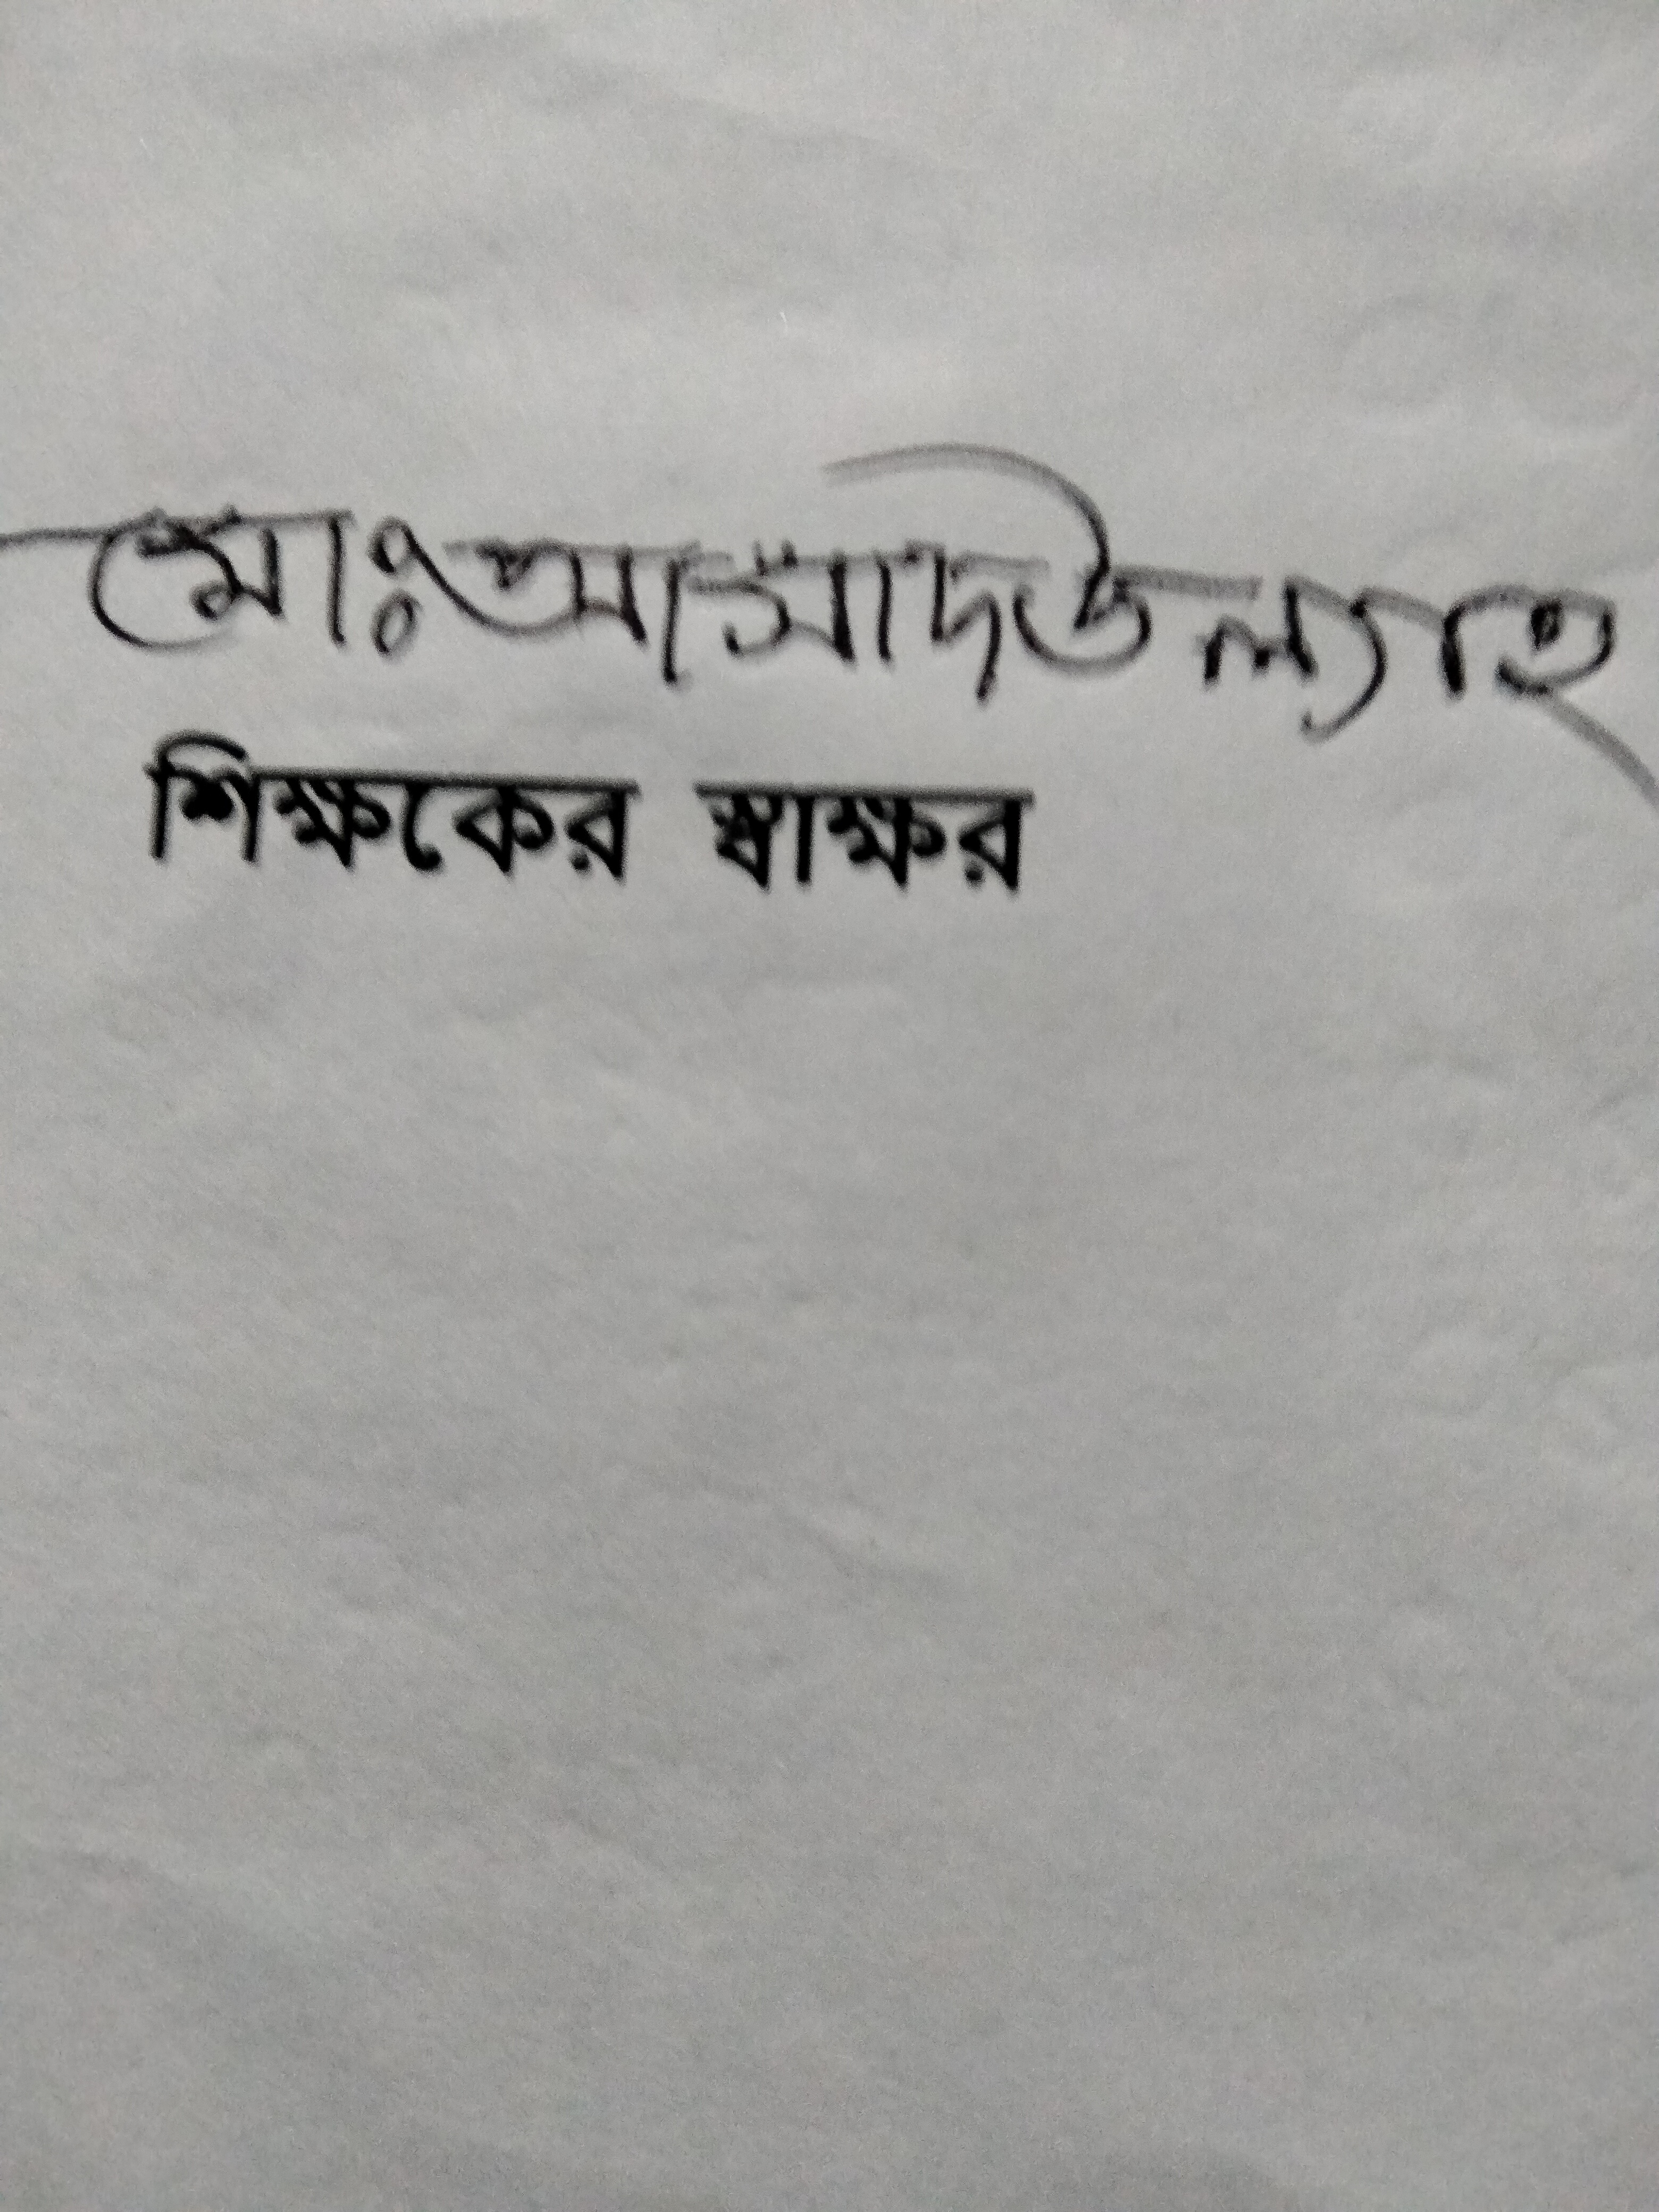 মোঃ আসাদউল্যাহ
শিক্ষকের স্বাক্ষর